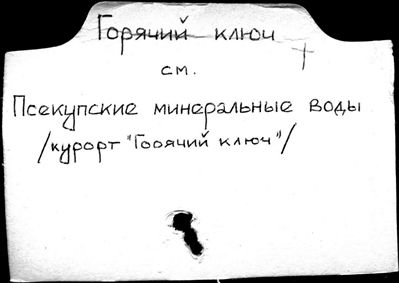 Горячий ключ
см.
Псекупские минеральные воды
/курорт "Горячий ключ"/